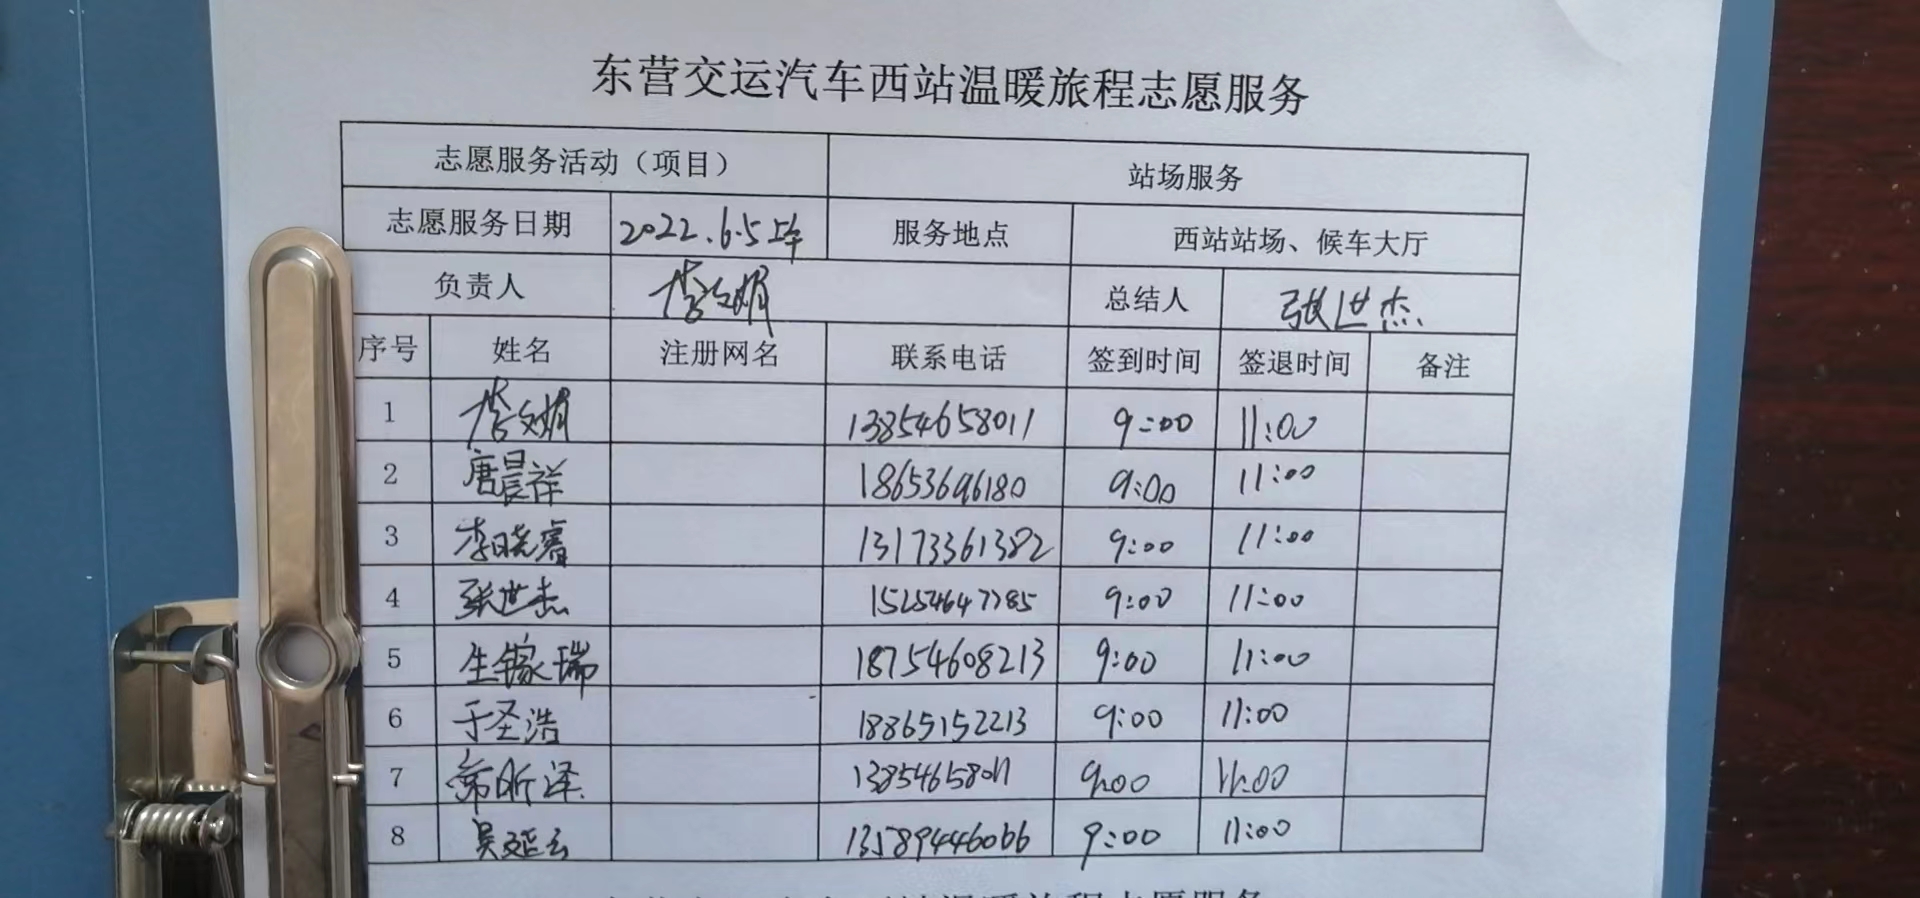 东营交运汽车西站温暖旅程志愿服务
志愿服务活动（项目） 站场服务
志愿服务日期 2022.6.5上午 服务地点 西站站场、候车大厅
负责人 李文娟 总结人 张世杰
序号 姓名 注册网名 联系电话 签到时间 签退时间 备注
1 李文娟 13854658011 9:00 11:00
2 唐晨祥 18653696180 9:00 11:00
3 李晓睿 13173361382 9:00 11:00
4 张世杰 15254647785 9:00 11:00
5 生镓瑞 18754608213 9:00 11:00
6 于圣浩 18865152213 9:00 11:00
7 昕泽 13854658011 9:00 11:00
8 吴延云 13589446066 9:00 11:00